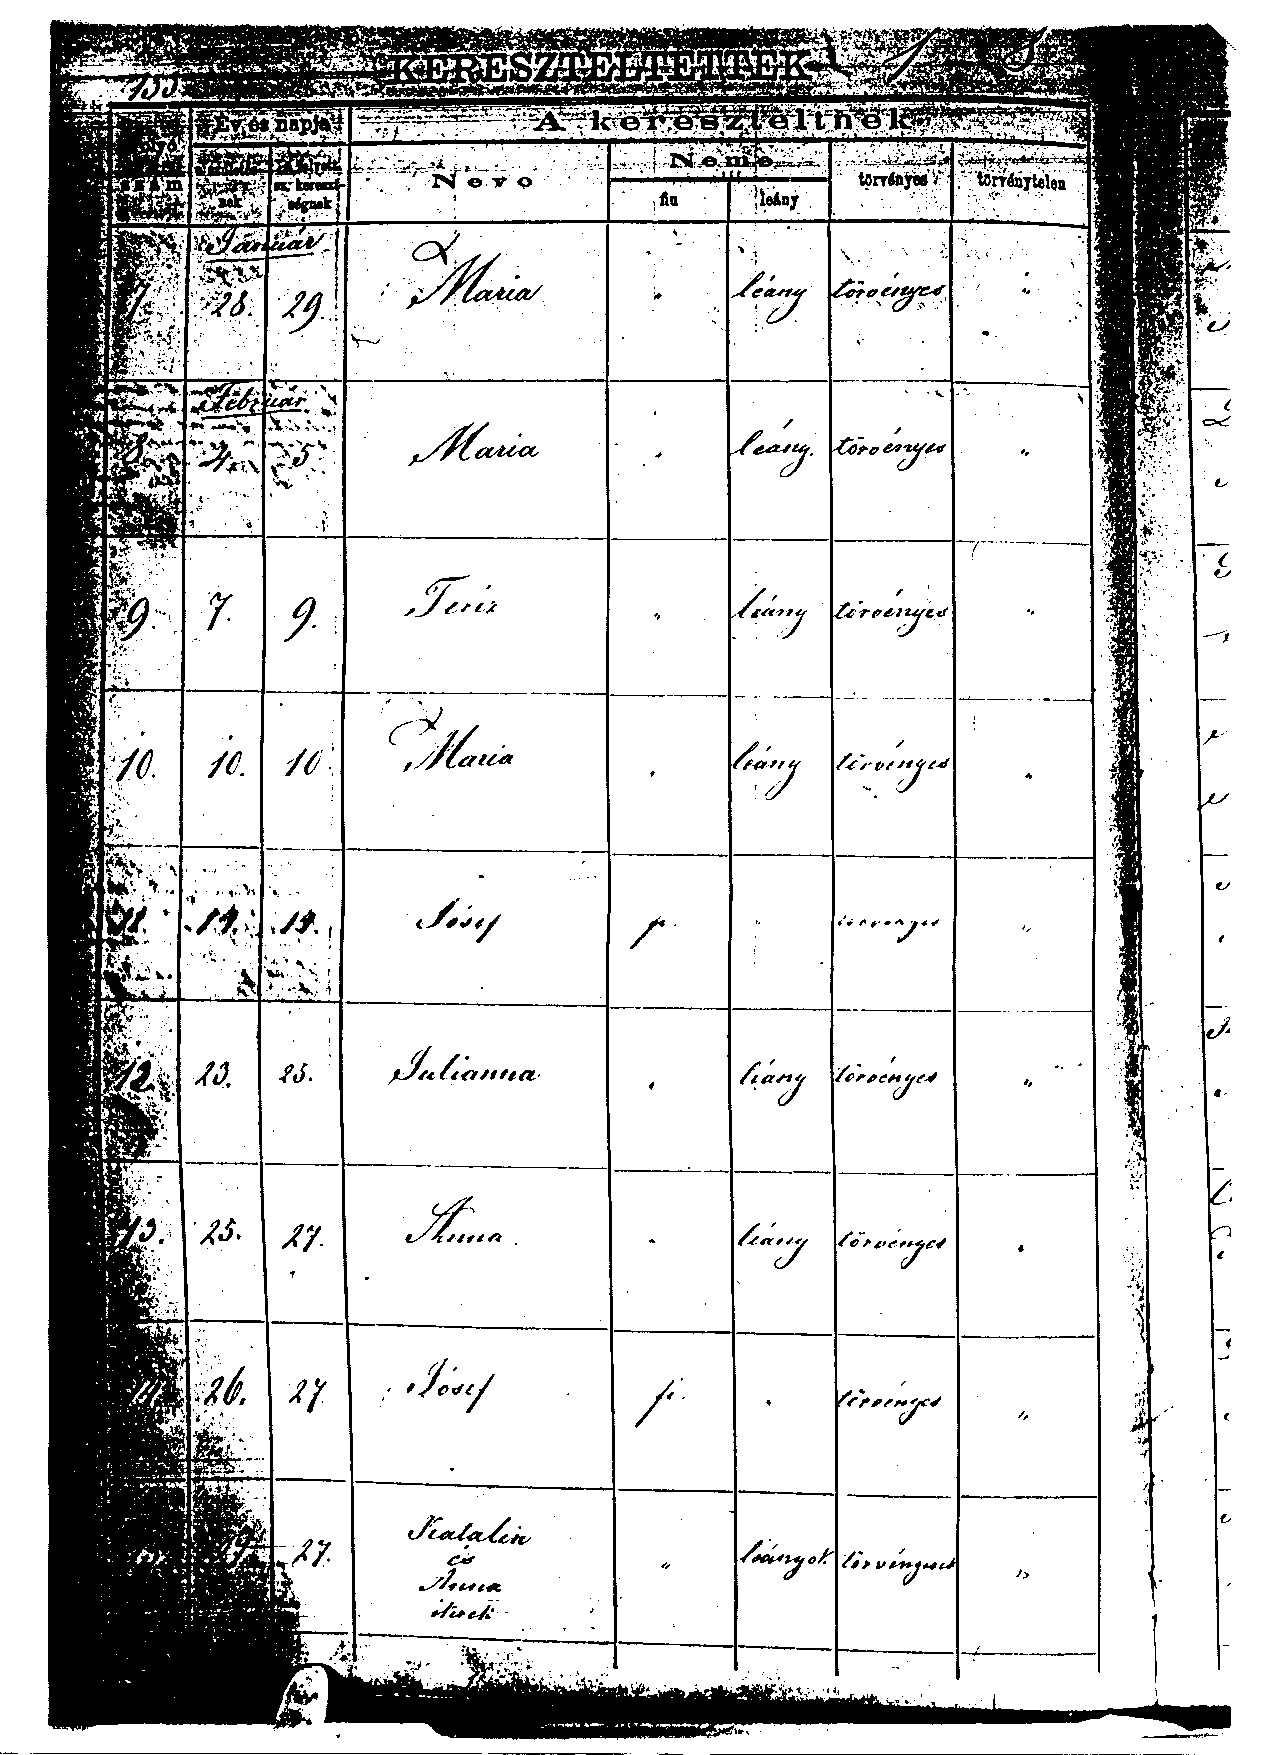 KERESZTELTETTEK
Év és napja A kereszteltnek
szám Neve Neme törvényes törvénytelen
nek ségnek fiu leány
Január
7. 28. 29. Maria " leány törvényes "
Február
8. 4. 5. Maria " leány. törvényes "
9. 7. 9. Teréz " leány törvényes "
10. 10. 10. Maria " leány törvényes "
11. 14. 14. Jósef f. törvényes "
12. 23. 25. Julianna " leány törvényes "
13. 25. 27. Anna " leány törvényes "
14. 26. 27. Jósef f. " törvényes "
27. Katalin " leányok törvényesek "
és
Anna
ikrek